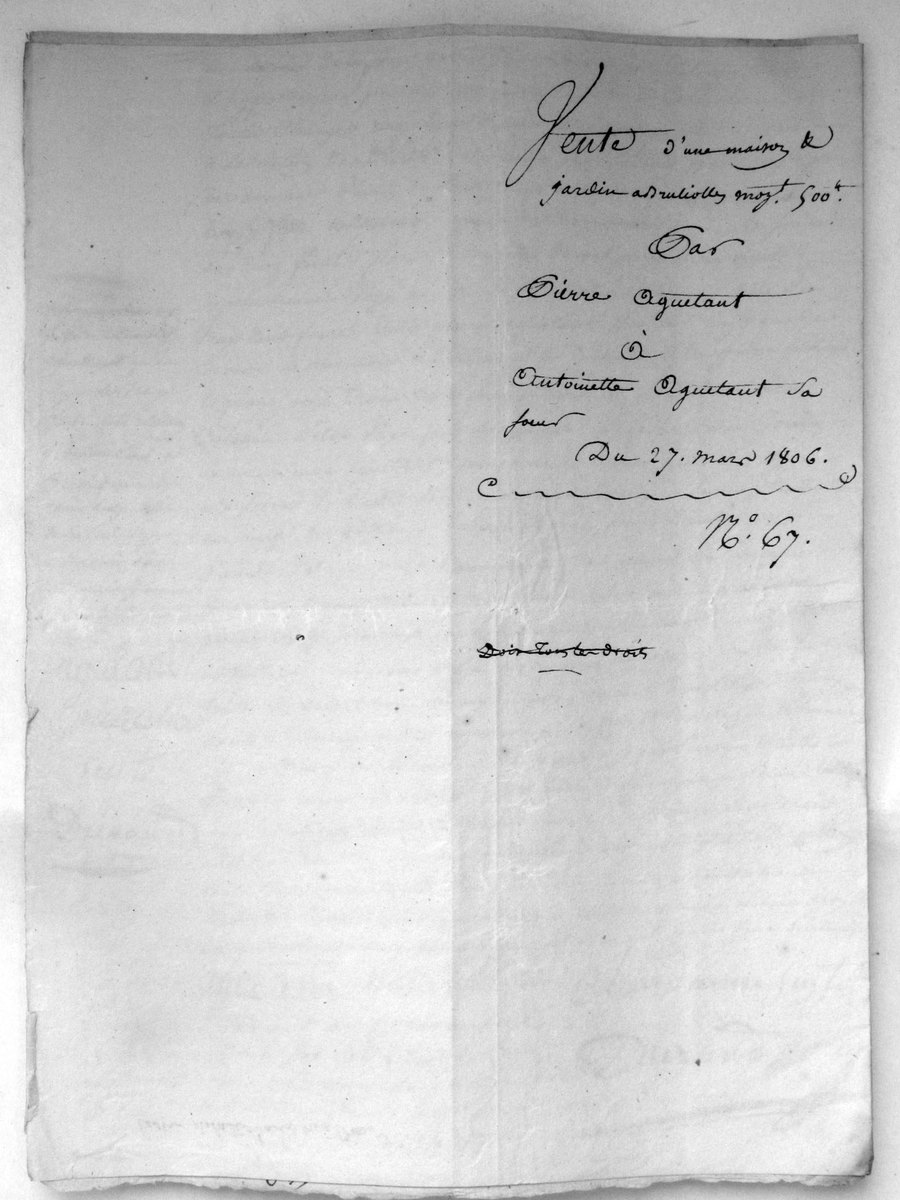 Vente d'une maison &
jardin a Brulliolles moy.t 500.tt
Par
Pierre Aguetant
À
Antoinette Aguetant sa
soeur
Du 27. mars 1806.
N.o 67.
Doit tous les droits